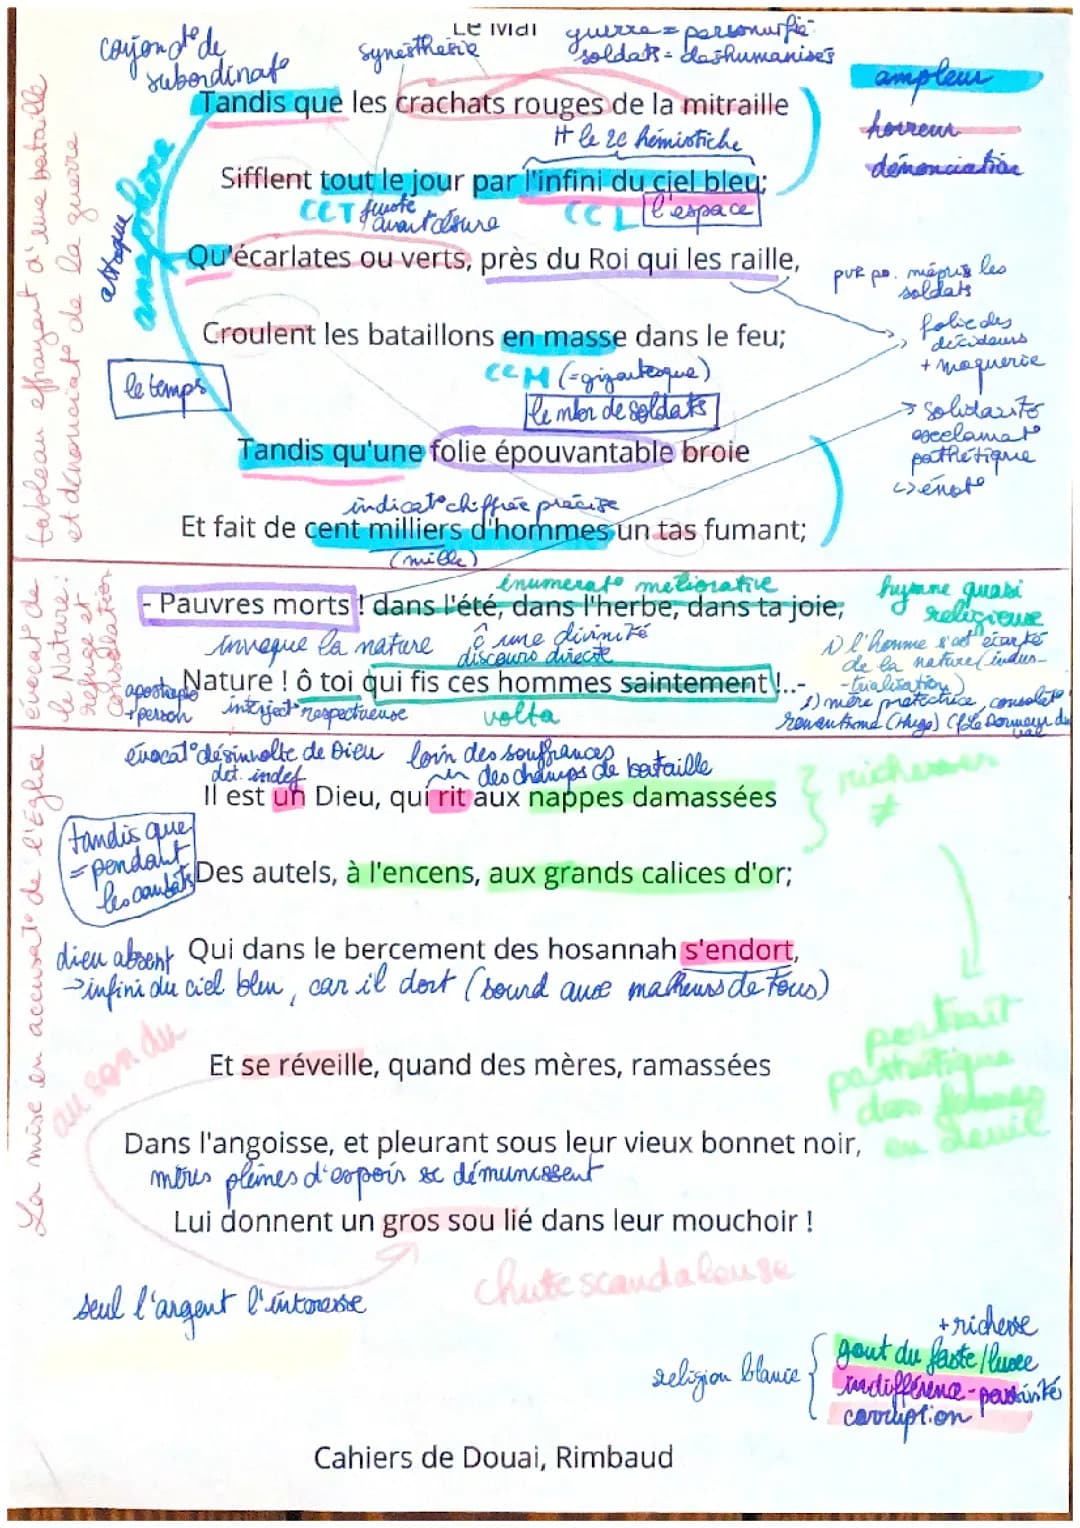 Le Mal
guerre = personnifié
soldats = deshumanisés
conjonct° de
subordinat°
synesthésie
ampleur
Tandis que les crachats rouges de la mitraille
horreur
dénonciation
H le 2e hémistiche
Sifflent tout le jour par l'infini du ciel bleu;
CCT
avant césure
CCL
l'espace
attaque
anaphore
Qu'écarlates ou verts, près du Roi qui les raille,
méprise les
soldats
folie des
décideurs
+ moquerie
Croulent les bataillons en masse dans le feu;
CCM (=gigantesque)
le nbr de soldats
le temps
→ solidarité
exclamat°
pathétique
↳ émot°
Tandis qu'une folie épouvantable broie
indicat° chiffrée précise
Et fait de cent milliers d'hommes un tas fumant;
(mille)
tableau effrayant d'une bataille
et dénonciat° de la guerre
énumérat° méliorative
hymne quasi
religieuse
- Pauvres morts ! dans l'été, dans l'herbe, dans ta joie,
invoque la nature
c une divinité
discours directe
1) l'homme s'est écarté
de la nature (indus-
-trialisation)
Nature ! ô toi qui fis ces hommes saintement !..-
apostrophe
+ person
interject° respectueuse
volta
2) mère protectrice, consolat°
romantisme (Hugo) (cf Le Dormeur du
val
évocat° de
la Nature:
refuge et
consolation
évocat° désinvolte de Dieu
loin des souffrances
det. indef
des champs de bataille
Il est un Dieu, qui rit aux nappes damassées
richesses
≠
tandis que
= pendant
les combats
Des autels, à l'encens, aux grands calices d'or;
Qui dans le bercement des hosannah s'endort,
dieu absent
→ infini du ciel bleu, car il dort (sourd aux malheurs de tous)
portrait
pathétique
des femmes
en deuil
au son du
Et se réveille, quand des mères, ramassées
Dans l'angoisse, et pleurant sous leur vieux bonnet noir,
mères pleines d'espoir se démunissent
Lui donnent un gros sou lié dans leur mouchoir !
La mise en accusat° de l'Église
chute scandaleuse
seul l'argent l'intéresse
+ richesse
religion blamée
gout du faste / luxe
indifférence - passivité
corruption
Cahiers de Douai, Rimbaud